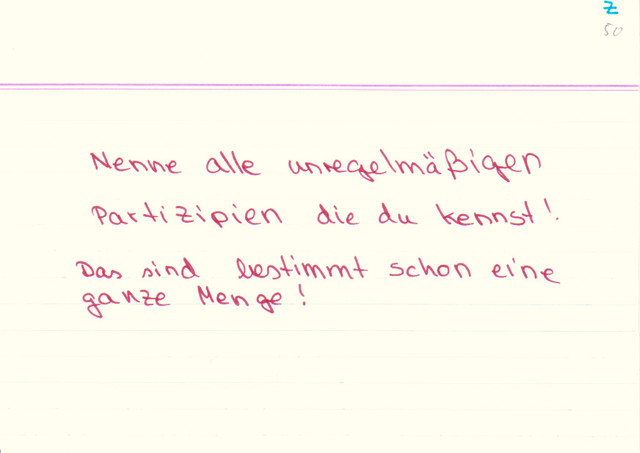 Z
50
Nenne alle unregelmäßigen
Partizipien die du kennst!
Das sind bestimmt schon eine
ganze Menge!